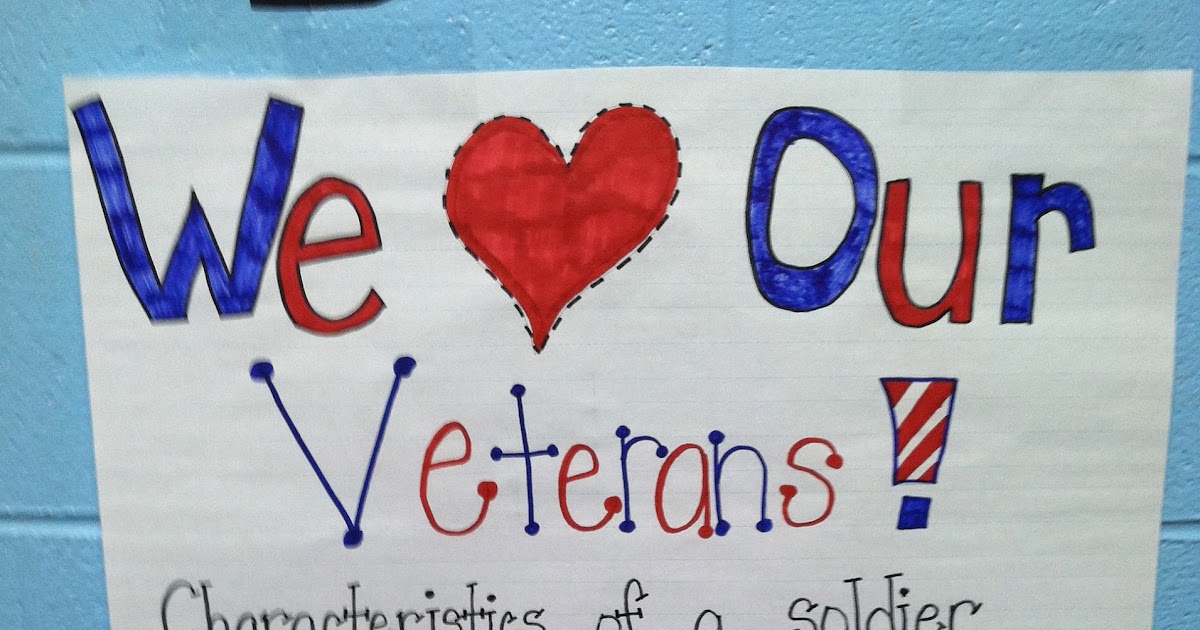 We ❤ Our
Veterans!
Characteristics of a soldier